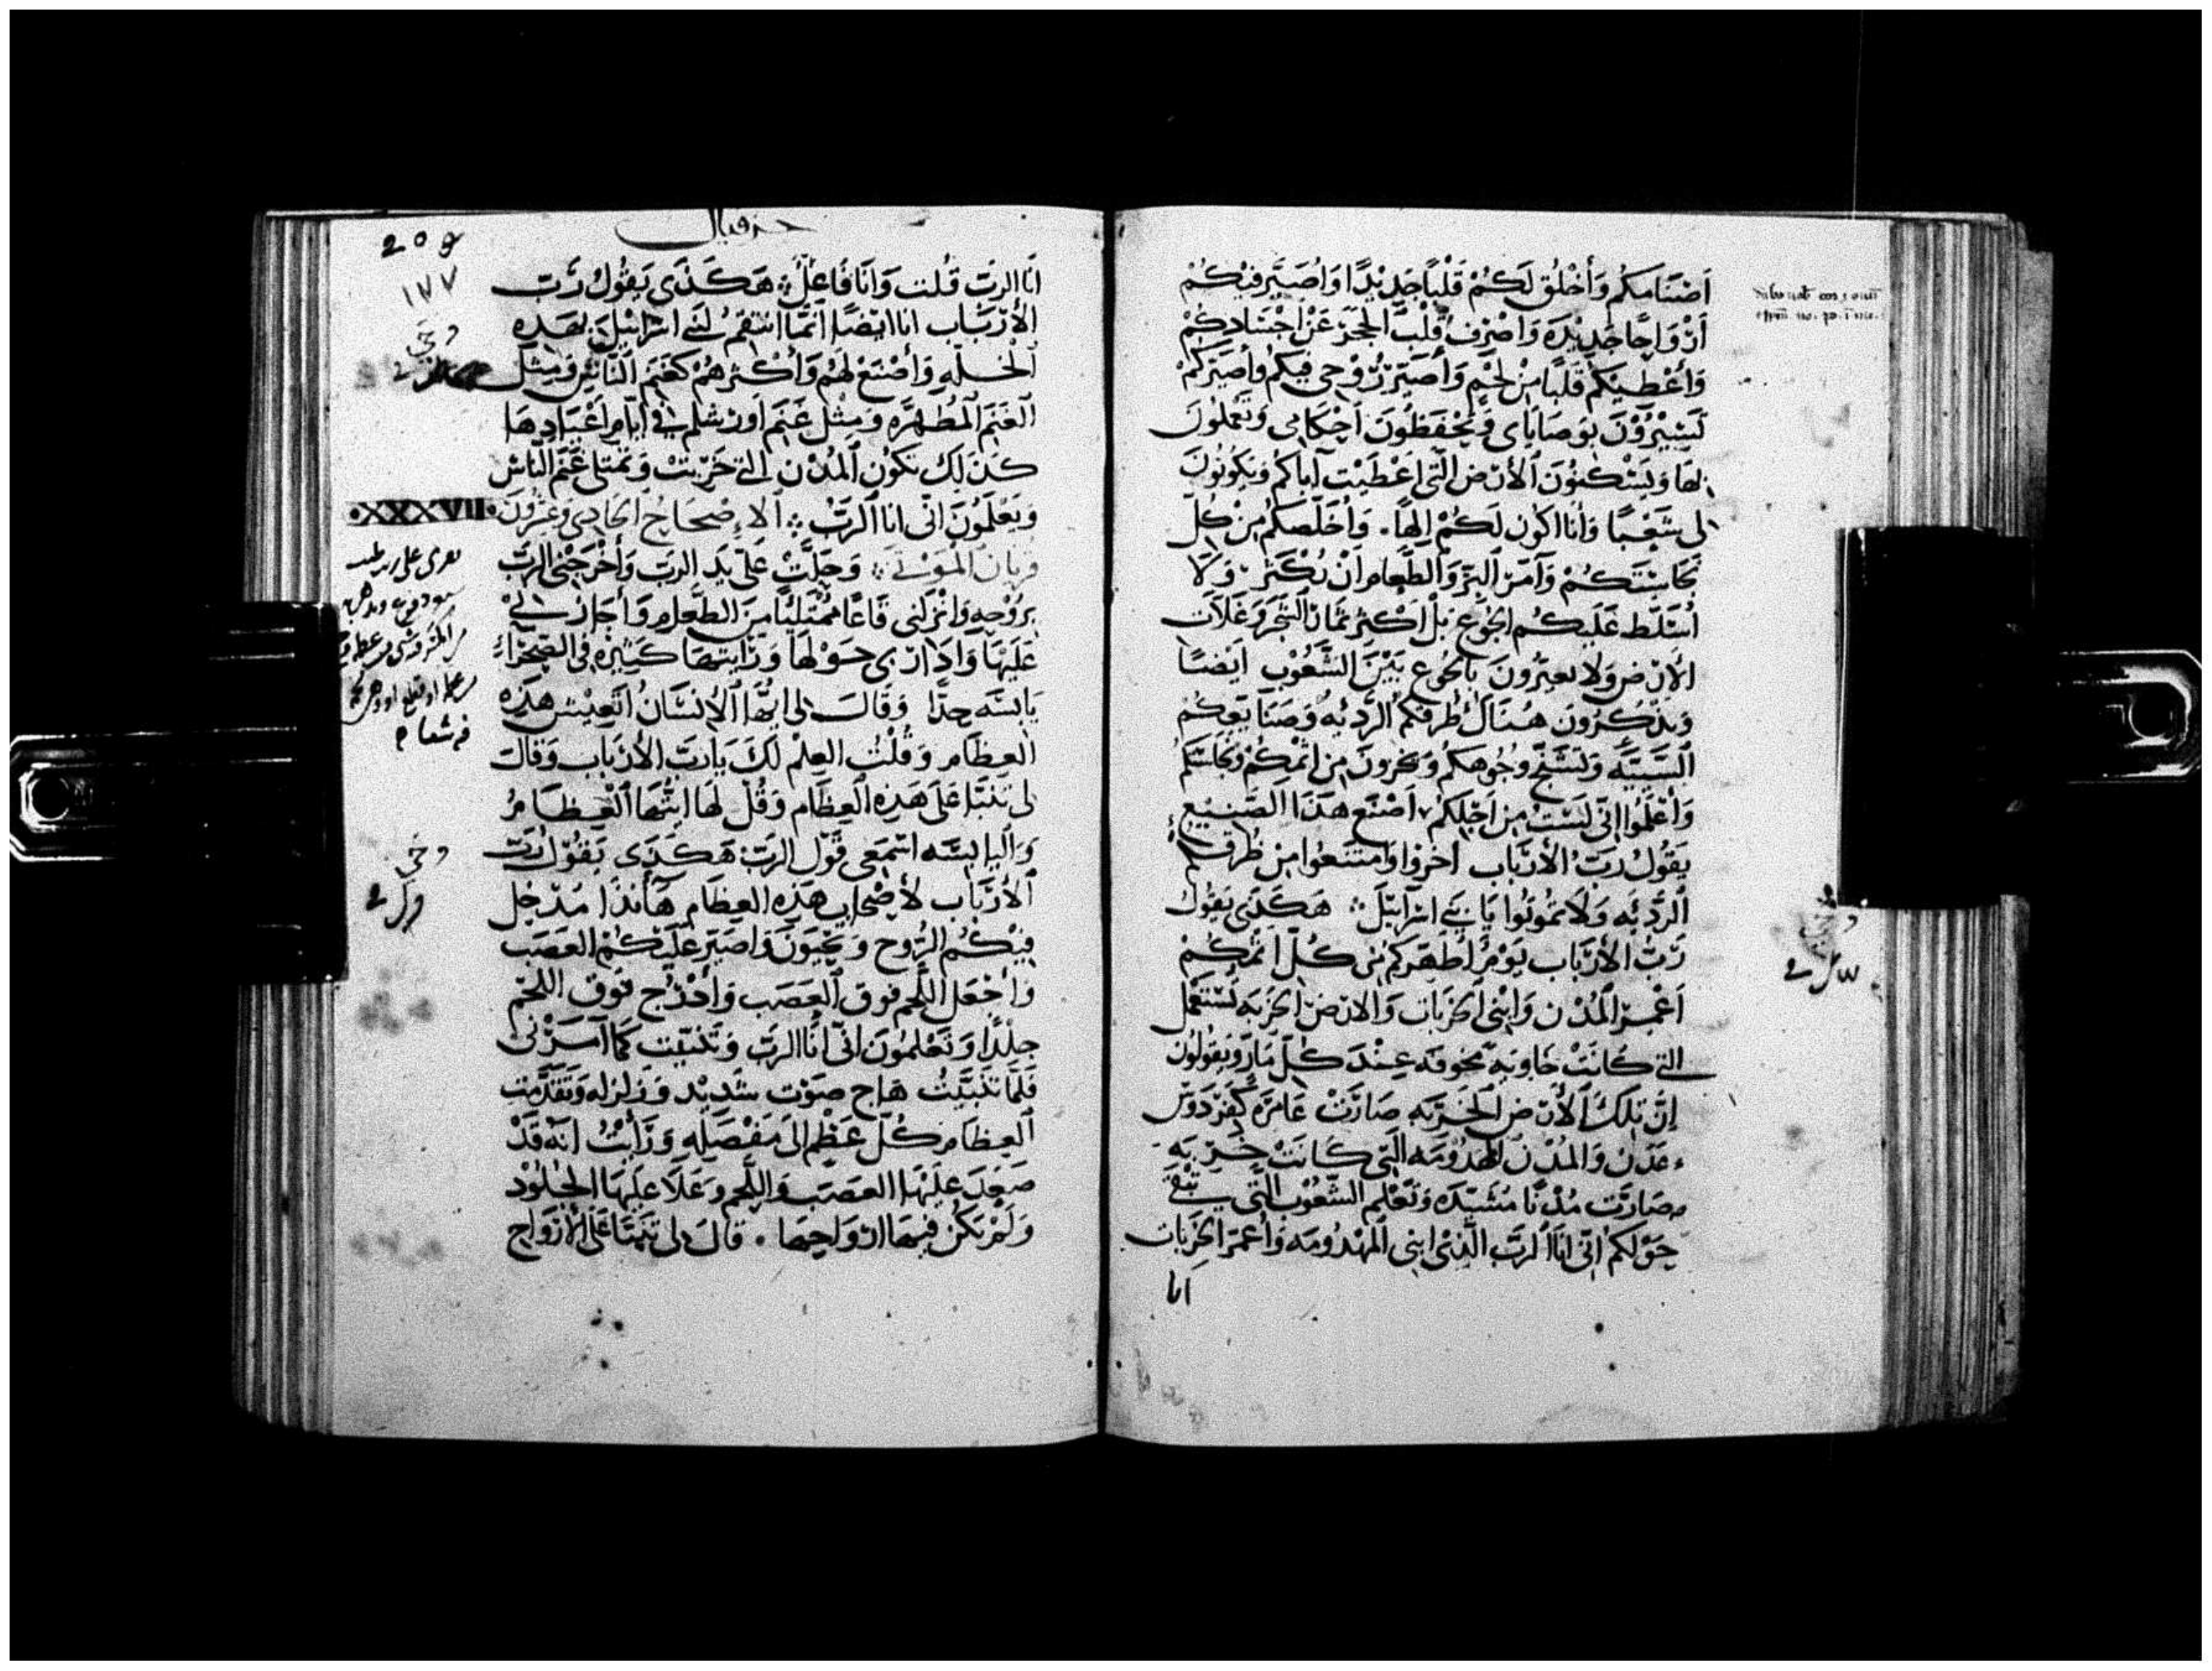 أصنامكم وأخلق لكم قلبا جديدا وأصير فيكم
أرواحا جديدة وأصرف قلب الحجر عن أجسادكم
وأعطيكم قلبا من لحم وأصير روحي فيكم وأصيركم
تسيرون بوصاياي وتحفظون أحكامي وتعملون
بها وتسكنون الأرض التي أعطيت آباكم وتكونون
لي شعبا وأنا أكون لكم إلها . وأخلصكم من كل
نجاستكم وآمر البر والطعام أن يكثر ولا
أسلط عليكم الجوع بل أكثر ثمار الشجر وغلات
الأرض ولا تعيرون بالجوع بين الشعوب أيضا
وتذكرون هنالك طرقكم الردئه وصنايعكم
السيئة وتشنج وجوهكم من إثمكم ونجاستكم
وأعلموا إني لست من أجلكم أصنع هذا الصنيع
يقول رب الأرباب اخزوا وامتنعوا من طرقكم
الردئه ولا تموتوا يا بني اسرآئيل هكذى يقول
رب الأرباب يوم أطهركم من كل إثمكم
أعمر المدن وابني الخربات والارض الخربه تستعمل
التي كانت خاويه مخوفه عند كل مار ويقولون
إن تلك الأرض الخربه صارت عامرة كفردوس
عدن والمدن المهدومه التي كانت خربه
صارت مدنا مشيده وتعلم الشعوب التي تبقى
حولكم إني أنا الرب الذي ابني المهدومه وأعمر الخربات
انا
حزقيال
209
١٧٧
أنا الرب قلت وأنا فاعل هكذى يقول رب
الأرباب انا ايضا انما انتقم لبني اسرائيل بهذه
الخله وأصنع لهم وأكثرهم كغنم الناس ومثل
الغنم المطهره ومثل غنم اورشلم في أيام أعيادها
كذلك تكون المدن التي خربت وتمتلي غنم الناس
ويعلمون اني انا الرب الإصحاح الحادي وعشرون
XXXVII
قربان الموتى وحلت علي يد الرب وأخرجني الرب
بروحه وانزلني قاعا ممتلئا من الطعام وأجازني
عليها وادارني حولها ورايتها كثيره في الصحراء
يابسه جدا وقال لي ايها الإنسان اتعيش هذه
العظام وقلت العلم لك يا رب الأرباب وقال
لي تنبا على هذه العظام وقل لها ايتها العظام
واليابسه اسمعي قول الرب هكذى يقول رب
الأرباب لأصحاب هذه العظام هأنذا مدخل
فيكم الروح وتحيون واصير عليكم العصب
وأجعل اللحم فوق العصب وأدرج فوق اللحم
جلدا وتعلمون اني أنا الرب وتنبيت كما آمرني
فلما تنبيت هاج صوت شديد وزلزله وتقدمت
العظام كل عظم الى مفصله ورأيت انه قد
صعد عليها العصب واللحم وعلا عليها الجلود
ولم يكن فيها ارواحها . قال لي تنبا على الأرواح